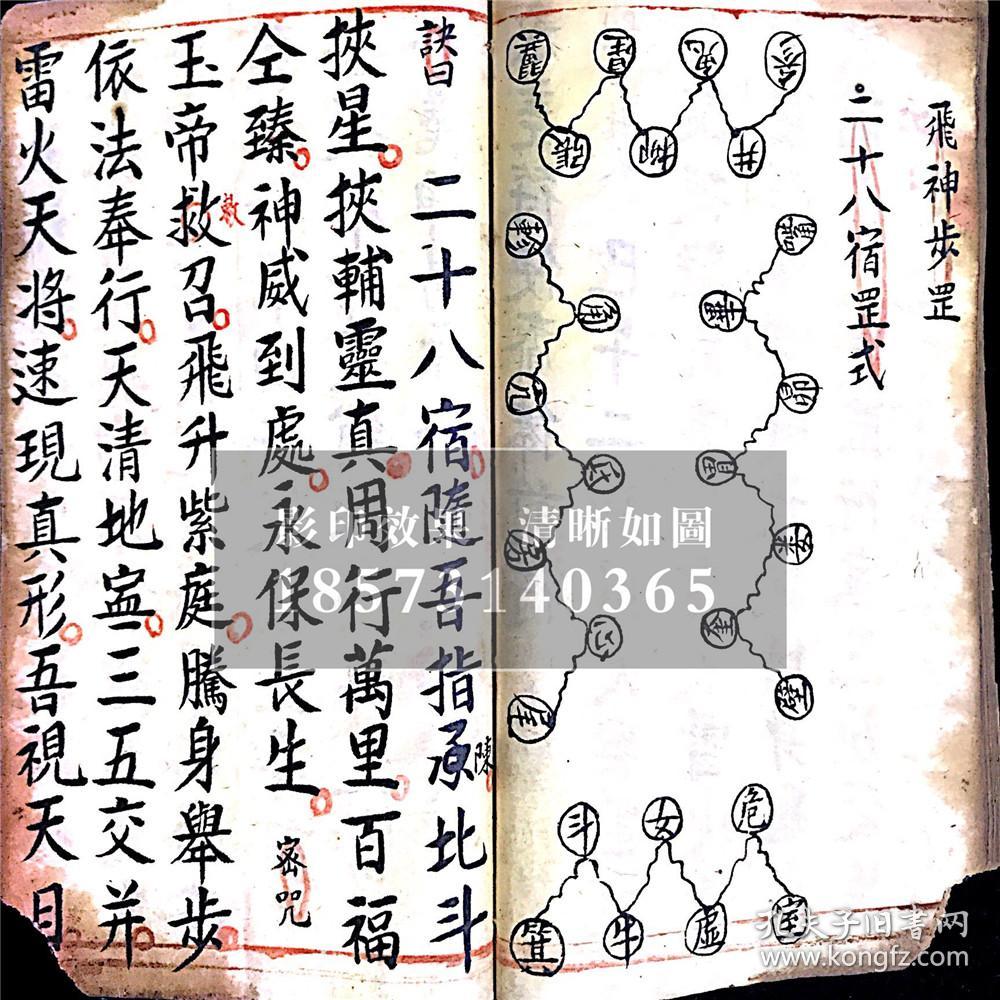 飛神步罡
二十八宿罡式
參
鬼
星
翼
井
柳
張
觜
畢
昴
胃
婁
奎
壁
軫
角
亢
氐
房
心
尾
危
女
斗
室
虛
牛
箕
訣曰
二十八宿隨吾指承比斗
陳
挾星挾輔靈真周行萬里百福
仝臻神威到處永保長生
密咒
玉帝救召飛升紫庭騰身舉步
敕
依法奉行天清地寍三五交并
雷火天將速現真形吾視天目
影印效果 清晰如圖
18573140365
孔夫子旧书网
www.kongfz.com